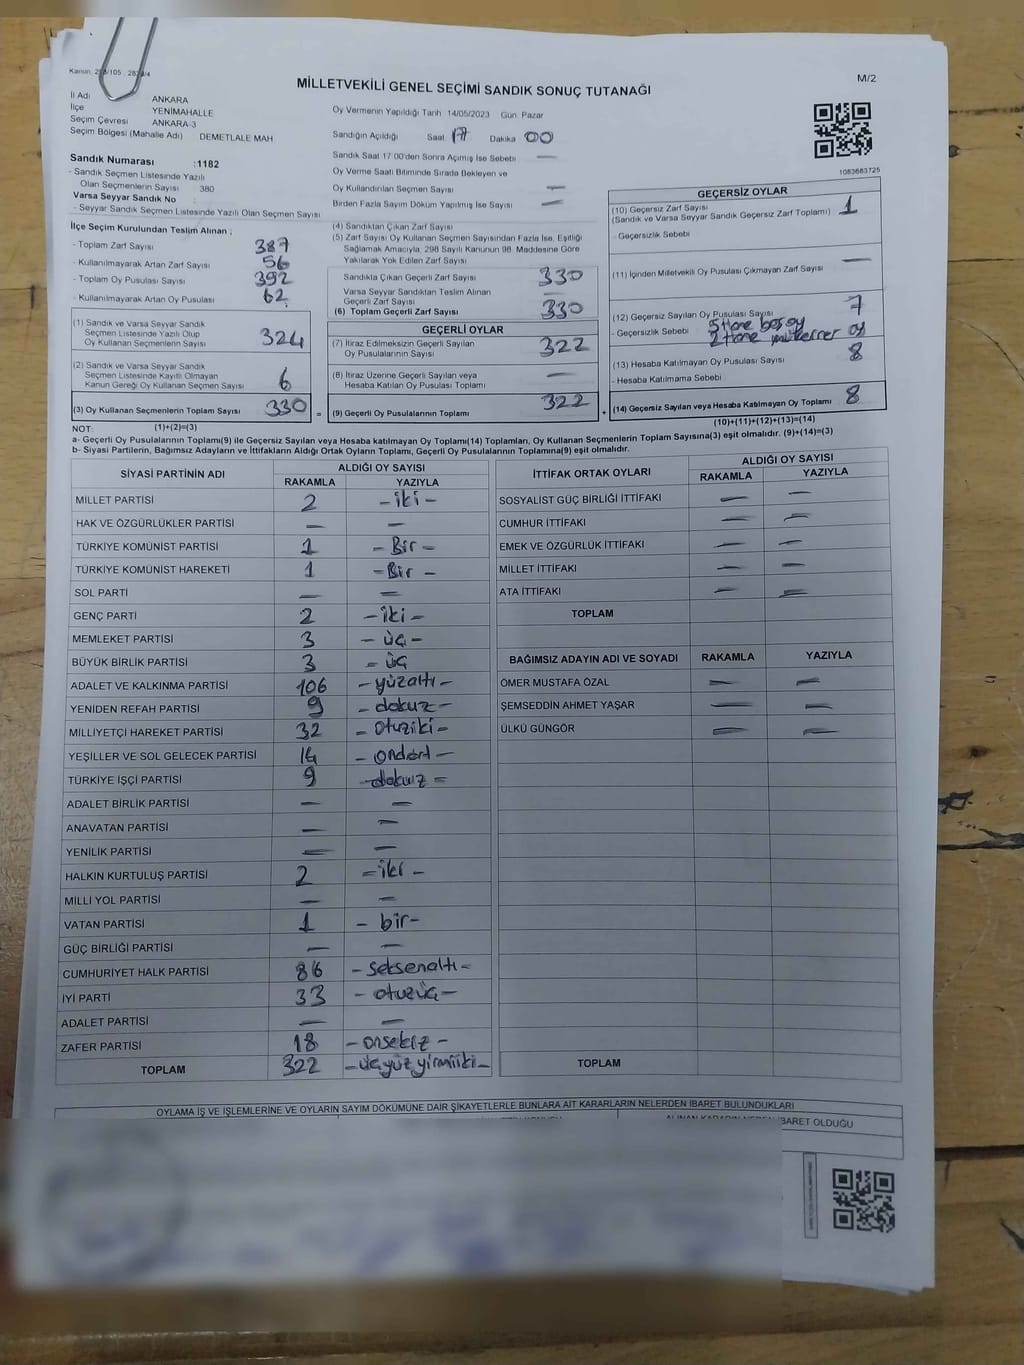 MİLLETVEKİLİ GENEL SEÇİMİ SANDIK SONUÇ TUTANAĞI
M/2
İl Adı ANKARA
İlçe YENİMAHALLE
Seçim Çevresi ANKARA-3
Seçim Bölgesi (Mahalle Adı) DEMETLALE MAH
Sandık Numarası :1182
- Sandık Seçmen Listesinde Yazılı
Olan Seçmenlerin Sayısı 380
Varsa Seyyar Sandık No :
- Seyyar Sandık Seçmen Listesinde Yazılı Olan Seçmen Sayısı
İlçe Seçim Kurulundan Teslim Alınan ;
- Toplam Zarf Sayısı 387
- Kullanılmayarak Artan Zarf Sayısı 56
- Toplam Oy Pusulası Sayısı 392
- Kullanılmayarak Artan Oy Pusulası 62
(1) Sandık ve Varsa Seyyar Sandık
Seçmen Listesinde Yazılı Olup
Oy Kullanan Seçmenlerin Sayısı 324
(2) Sandık ve Varsa Seyyar Sandık
Seçmen Listesinde Kayıtlı Olmayan
Kanun Gereği Oy Kullanan Seçmen Sayısı 6
(3) Oy Kullanan Seçmenlerin Toplam Sayısı 330 =
(1)+(2)=(3)
Oy Vermenin Yapıldığı Tarih 14/05/2023 Gün Pazar
Sandığın Açıldığı Saat 17 Dakika 00
Sandık Saat 17:00'den Sonra Açılmış İse Sebebi —
Oy Verme Saati Bitiminde Sırada Bekleyen ve
Oy Kullandırılan Seçmen Sayısı —
Birden Fazla Sayım Döküm Yapılmış İse Sayısı —
(4) Sandıktan Çıkan Zarf Sayısı
(5) Zarf Sayısı Oy Kullanan Seçmen Sayısından Fazla İse, Eşitliği
Sağlamak Amacıyla, 298 Sayılı Kanunun 98. Maddesine Göre
Yakılarak Yok Edilen Zarf Sayısı
Sandıkla Çıkan Geçerli Zarf Sayısı 330
Varsa Seyyar Sandıktan Teslim Alınan
Geçerli Zarf Sayısı —
(6) Toplam Geçerli Zarf Sayısı 330
GEÇERLİ OYLAR
(7) İtiraz Edilmeksizin Geçerli Sayılan
Oy Pusulalarının Sayısı 322
(8) İtiraz Üzerine Geçerli Sayılan veya
Hesaba Katılan Oy Pusulası Toplamı —
(9) Geçerli Oy Pusulalarının Toplamı 322 +
1083683725
GEÇERSİZ OYLAR
(10) Geçersiz Zarf Sayısı 1
(Sandık ve Varsa Seyyar Sandık Geçersiz Zarf Toplamı)
- Geçersizlik Sebebi
(11) İçinden Milletvekili Oy Pusulası Çıkmayan Zarf Sayısı —
(12) Geçersiz Sayılan Oy Pusulası Sayısı 7
- Geçersizlik Sebebi 5 tane boş oy
2 tane mükerrer oy
(13) Hesaba Katılmayan Oy Pusulası Sayısı 8
- Hesaba Katılmama Sebebi
(14) Geçersiz Sayılan veya Hesaba Katılmayan Oy Toplamı 8
(10)+(11)+(12)+(13)=(14)
NOT:
a- Geçerli Oy Pusulalarının Toplamı(9) ile Geçersiz Sayılan veya Hesaba katılmayan Oy Toplamı(14) Toplamları, Oy Kullanan Seçmenlerin Toplam Sayısına(3) eşit olmalıdır. (9)+(14)=(3)
b- Siyasi Partilerin, Bağımsız Adayların ve İttifakların Aldığı Ortak Oyların Toplamı, Geçerli Oy Pusulalarının Toplamına(9) eşit olmalıdır.
SİYASİ PARTİNİN ADI ALDIĞI OY SAYISI
RAKAMLA YAZIYLA
MİLLET PARTİSİ 2 - iki -
HAK VE ÖZGÜRLÜKLER PARTİSİ — —
TÜRKİYE KOMÜNİST PARTİSİ 1 - Bir -
TÜRKİYE KOMÜNİST HAREKETİ 1 - Bir -
SOL PARTİ — —
GENÇ PARTİ 2 - iki -
MEMLEKET PARTİSİ 3 - üç -
BÜYÜK BİRLİK PARTİSİ 3 - üç
ADALET VE KALKINMA PARTİSİ 106 - yüzaltı -
YENİDEN REFAH PARTİSİ 9 - dokuz -
MİLLİYETÇİ HAREKET PARTİSİ 32 - otuziki -
YEŞİLLER VE SOL GELECEK PARTİSİ 14 - ondört -
TÜRKİYE İŞÇİ PARTİSİ 9 - dokuz -
ADALET BİRLİK PARTİSİ — —
ANAVATAN PARTİSİ — —
YENİLİK PARTİSİ — —
HALKIN KURTULUŞ PARTİSİ 2 - iki -
MİLLİ YOL PARTİSİ — —
VATAN PARTİSİ 1 - bir -
GÜÇ BİRLİĞİ PARTİSİ — —
CUMHURİYET HALK PARTİSİ 86 - seksenaltı -
İYİ PARTİ 33 - otuzüç -
ADALET PARTİSİ — —
ZAFER PARTİSİ 18 - onsekiz -
TOPLAM 322 - üçyüzyirmiiki -
İTTİFAK ORTAK OYLARI ALDIĞI OY SAYISI
RAKAMLA YAZIYLA
SOSYALİST GÜÇ BİRLİĞİ İTTİFAKI — —
CUMHUR İTTİFAKI — —
EMEK VE ÖZGÜRLÜK İTTİFAKI — —
MİLLET İTTİFAKI — —
ATA İTTİFAKI — —
TOPLAM
BAĞIMSIZ ADAYIN ADI VE SOYADI RAKAMLA YAZIYLA
ÖMER MUSTAFA ÖZAL — —
ŞEMSEDDİN AHMET YAŞAR — —
ÜLKÜ GÜNGÖR — —
TOPLAM
OYLAMA İŞ VE İŞLEMLERİNE VE OYLARIN SAYIM DÖKÜMÜNE DAİR ŞİKAYETLERLE BUNLARA AİT KARARLARIN NELERDEN İBARET BULUNDUKLARI
ALINAN KARARIN NEDEN İBARET OLDUĞU